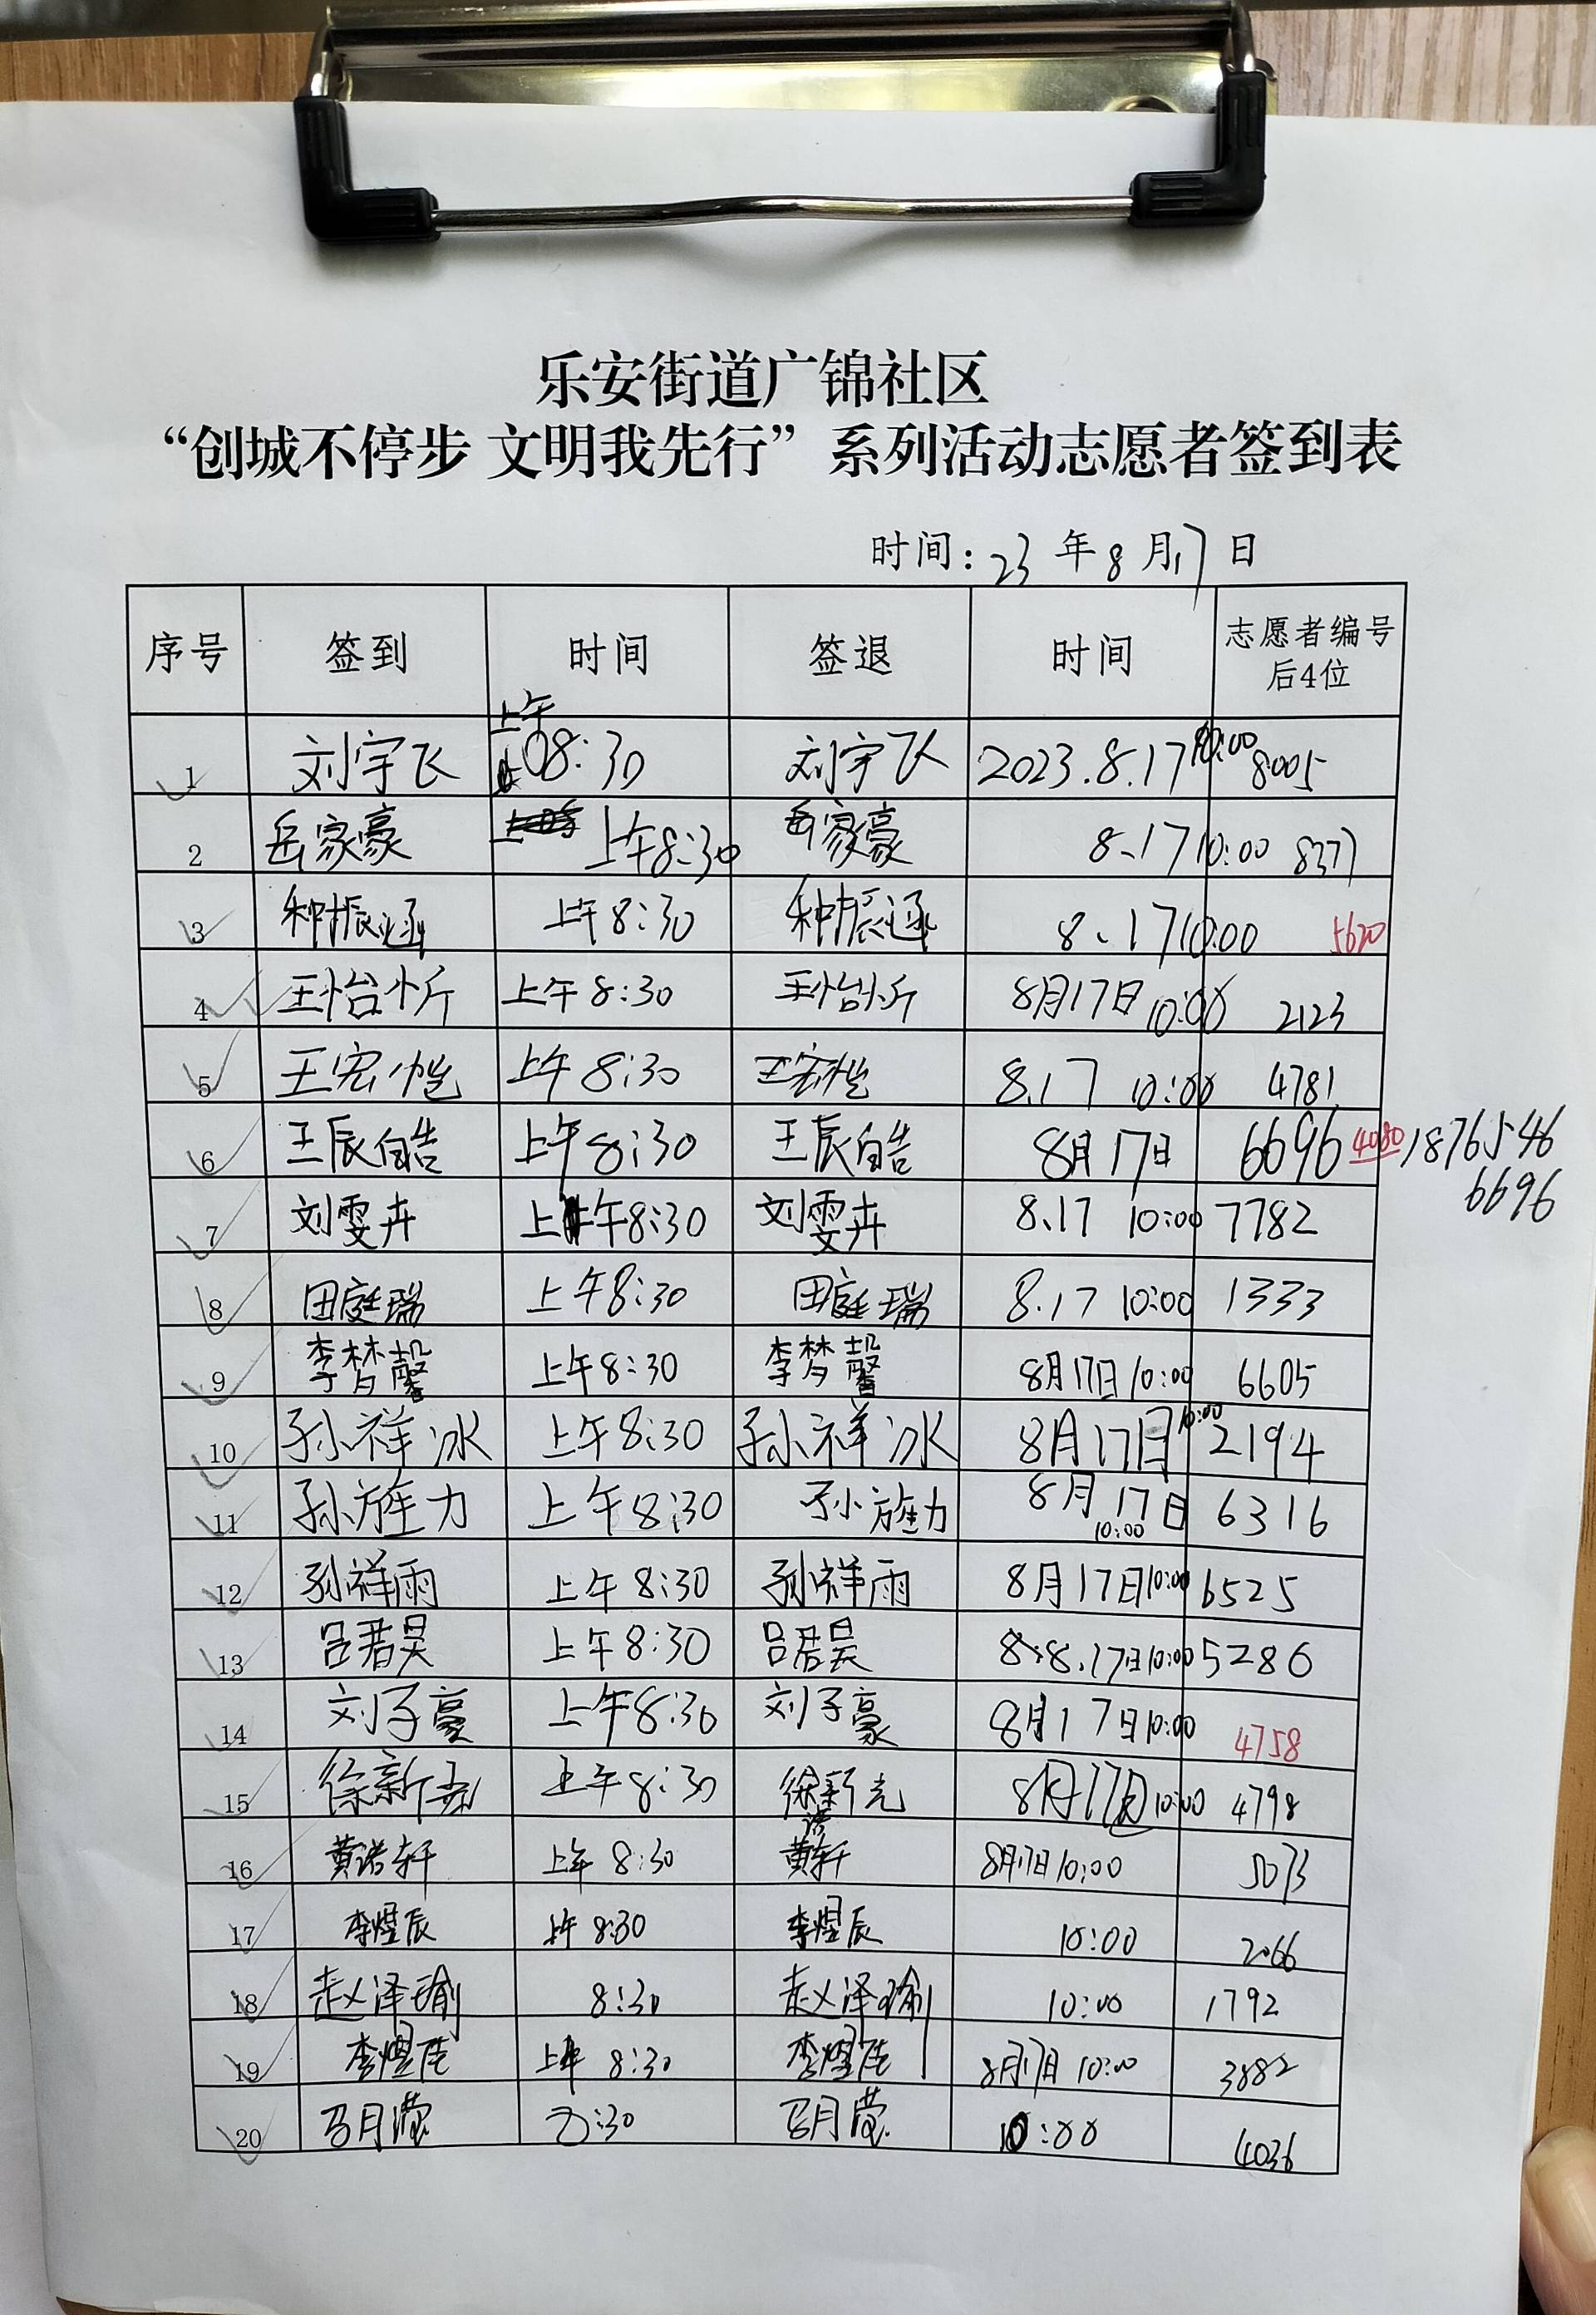 乐安街道广锦社区
“创城不停步 文明我先行”系列活动志愿者签到表
时间：23 年 8 月 17 日
序号 签到 时间 签退 时间 志愿者编号后4位
1 刘宇飞 上午 08:30 刘宇飞 2023.8.17 10:00 8005
2 岳家豪 上午8:30 岳家豪 8.17 10:00 8377
3 种振涵 上午8:30 种振涵 8.17 10:00 5620
4 王怡忻 上午 8:30 王怡忻 8月17日 10:00 2123
5 王宏恺 上午 8:30 王宏恺 8.17 10:00 4781
6 王辰皓 上午8:30 王辰皓 8月17日 6696 4080 18765466696
7 刘雯卉 上午8:30 刘雯卉 8.17 10:00 7782
8 田庭瑞 上午8:30 田庭瑞 8.17 10:00 1333
9 李梦馨 上午8:30 李梦馨 8月17日 10:00 6605
10 孙祥冰 上午8:30 孙祥冰 8月17日 10:00 2194
11 孙旌力 上午8:30 孙旌力 8月17日 10:00 6316
12 孙祥雨 上午8:30 孙祥雨 8月17日10:00 6525
13 吕君昊 上午8:30 吕君昊 8.17日10:00 5286
14 刘子豪 上午8:30 刘子豪 8月17日10:00 4758
15 徐新 上午8:30 徐新 8月17日 10:00 4798
16 黄诺轩 上午 8:30 黄诺轩 8月17日10:00 5073
17 李煜辰 上午 8:30 李煜辰 10:00 2066
18 赵泽瑜 8:30 赵泽瑜 10:00 1792
19 李煜 上午 8:30 李煜 8月17日 10:00 3882
20 马月滢 8:30 马月滢 10:00 4036